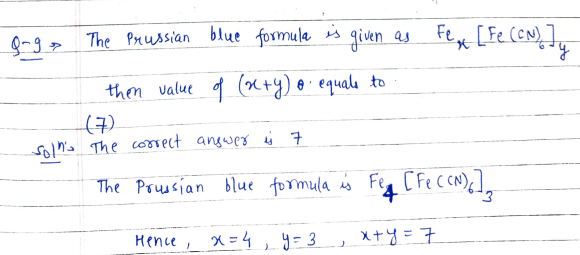 Q-9 ⇒ The Prussian blue formula is given as Feₓ [Fe(CN)₆]y
then value of (x+y) equals to.
(7)
Solⁿ:- The correct answer is 7
The Prussian blue formula is Fe₄ [Fe(CN)₆]₃
Hence, x=4, y=3, x+y=7